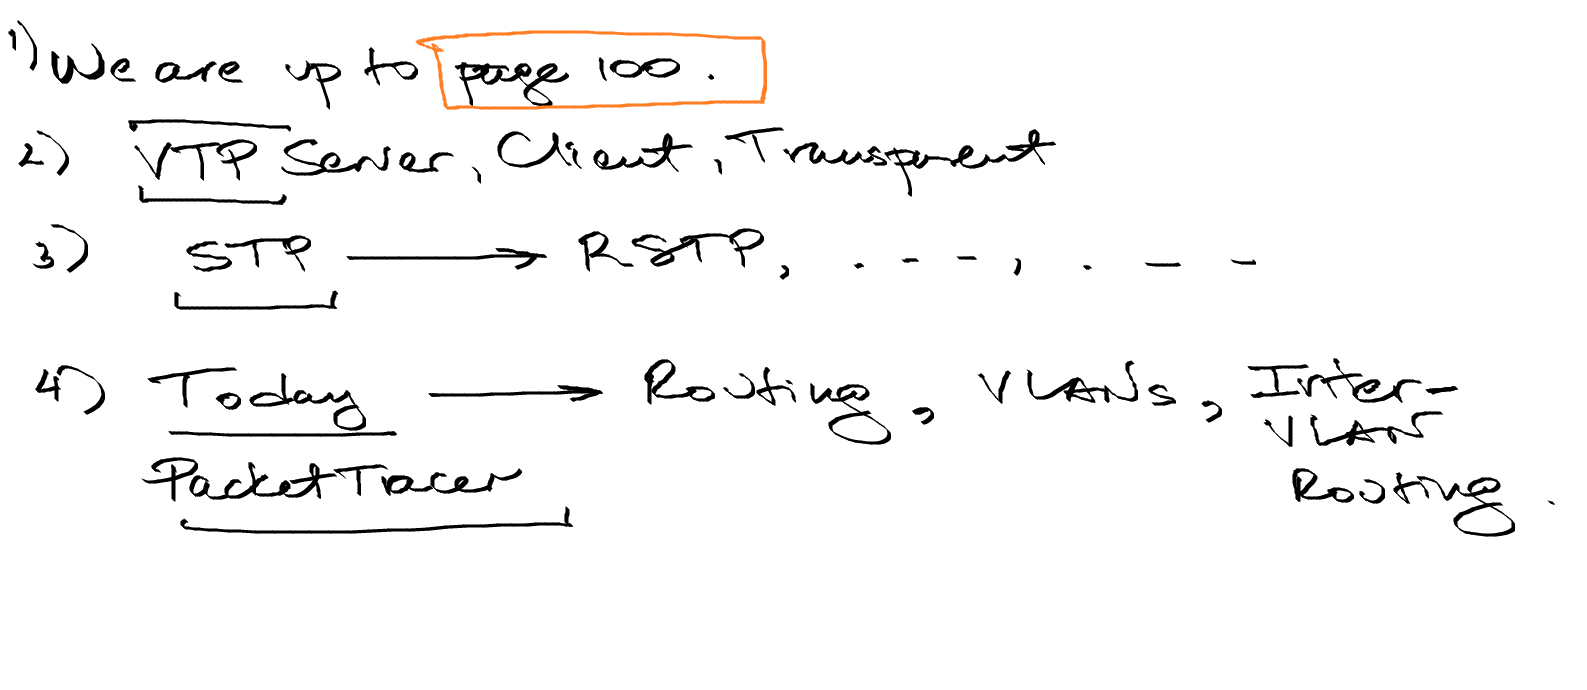 1) We are up to page 100.
2) VTP Server, Client, Transparent
3) STP → RSTP, . - - - , . - -
4) Today → Routing, VLANs, Inter-
VLAN
Packet Tracer
Routing.